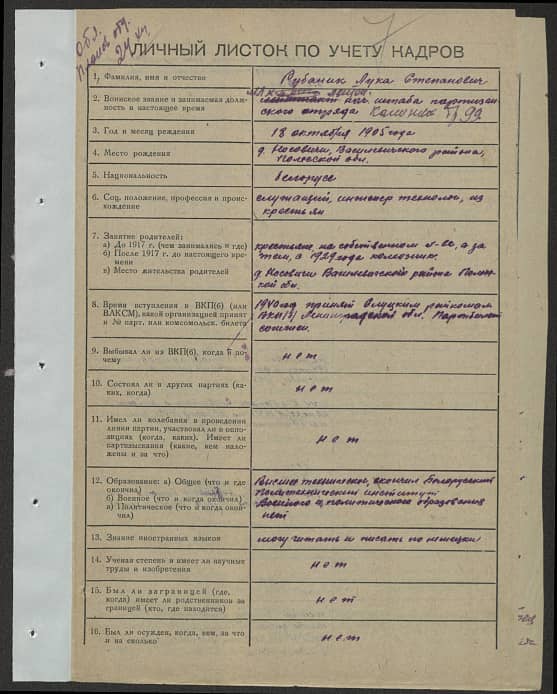 Обл.
ЛИЧНЫЙ ЛИСТОК ПО УЧЕТУ КАДРОВ
1. Фамилия, имя и отчество
Рубаник Лука Степанович
2. Воинское звание и занимаемая долж-
ность в настоящее время
нач. штаба партизан-
ского отряда
3. Год и месяц рождения
18 октября 1905 года
4. Место рождения
д. Носовичи, Василевичского района,
Полесской обл.
5. Национальность
белорусс
6. Соц. положение, профессия и проис-
хождение
служащий, инженер технолог, из
крестьян
7. Занятие родителей:
а) До 1917 г. (чем занимались и где)
б) После 1917 г. до настоящего вре-
мени
в) Место жительства родителей
крестьяне, на собственном, а за
тем, с 1929 года колхозник.
д. Носовичи Василевичского района Полес-
кой обл.
8. Время вступления в ВКП(б) (или
ВЛКСМ), какой организацией принят
и № карт. или комсомольск. билета
1940 год принят Слуцким райкомом
ВКП/б/ Ленинградской обл.
9. Выбывал ли из ВКП(б), когда и по-
чему
нет
10. Состоял ли в других партиях (ка-
ких, когда)
нет
11. Имел ли колебания в проведении
линии партии, участвовал ли в оппо-
зициях (когда, каких). Имеет ли
партвзыскания (какие, кем нало-
жены и за что)
нет
12. Образование: а) Общее (что и где
окончил)
б) Военное (что и когда окончил)
в) Политическое (что и когда окон-
чил)
Высшее техническое, окончил Белорусский
Политехнический институт
Военного и политического образования
нет
13. Знание иностранных языков
могу читать и писать по немецки
14. Ученая степень и имеет ли научные
труды и изобретения
нет
15. Был ли заграницей (где,
когда) имеет ли родственников за
границей (кто, где находится)
нет
16. Был ли осужден, когда, кем, за что
и на сколько
нет